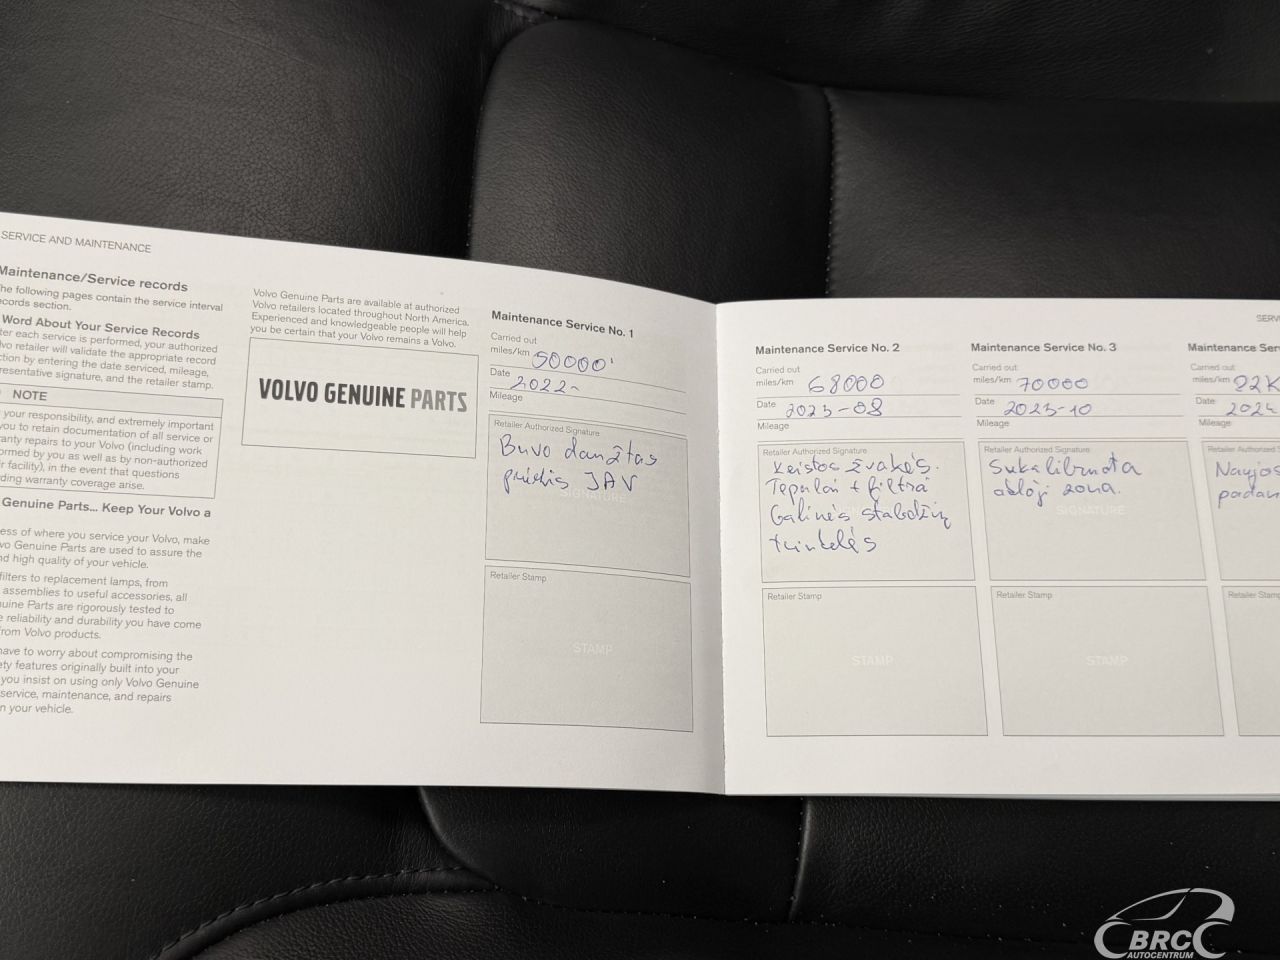 SERVICE AND MAINTENANCE
Maintenance/Service records
he following pages contain the service interval
ecords section.
Word About Your Service Records
ter each service is performed, your authorized
lvo retailer will validate the appropriate record
ction by entering the date serviced, mileage,
resentative signature, and the retailer stamp.
NOTE
your responsibility, and extremely important
you to retain documentation of all service or
anty repairs to your Volvo (including work
ormed by you as well as by non-authorized
ir facility), in the event that questions
ding warranty coverage arise.
Genuine Parts... Keep Your Volvo a
ess of where you service your Volvo, make
vo Genuine Parts are used to assure the
nd high quality of your vehicle.
filters to replacement lamps, from
assemblies to useful accessories, all
uine Parts are rigorously tested to
e reliability and durability you have come
from Volvo products.
have to worry about compromising the
ety features originally built into your
you insist on using only Volvo Genuine
service, maintenance, and repairs
n your vehicle.
Volvo Genuine Parts are available at authorized
Volvo retailers located throughout North America.
Experienced and knowledgeable people will help
you be certain that your Volvo remains a Volvo.
VOLVO GENUINE PARTS
Maintenance Service No. 1
Carried out
miles/km 50000
Date 2022
Mileage
Retailer Authorized Signature
Buvo
JAV
SIGNATURE
Retailer Stamp
STAMP
Maintenance Service No. 2
Carried out
miles/km 68000
Date 2023-08
Mileage
Retailer Authorized Signature
Keistos žvakės.
Tepalai + filtrai
Galinės stabdžių
trinkelės
Retailer Stamp
STAMP
Maintenance Service No. 3
Carried out
miles/km 70000
Date 2023-10
Mileage
Retailer Authorized Signature
Sukalibruota
zona.
SIGNATURE
Retailer Stamp
STAMP
SERV
Maintenance Serv
Carried out
miles/km 82K
Date 2024
Mileage
Retailer Authorized S
Naujos
padan
Retailer Stamp
BRC
AUTOCENTRUM